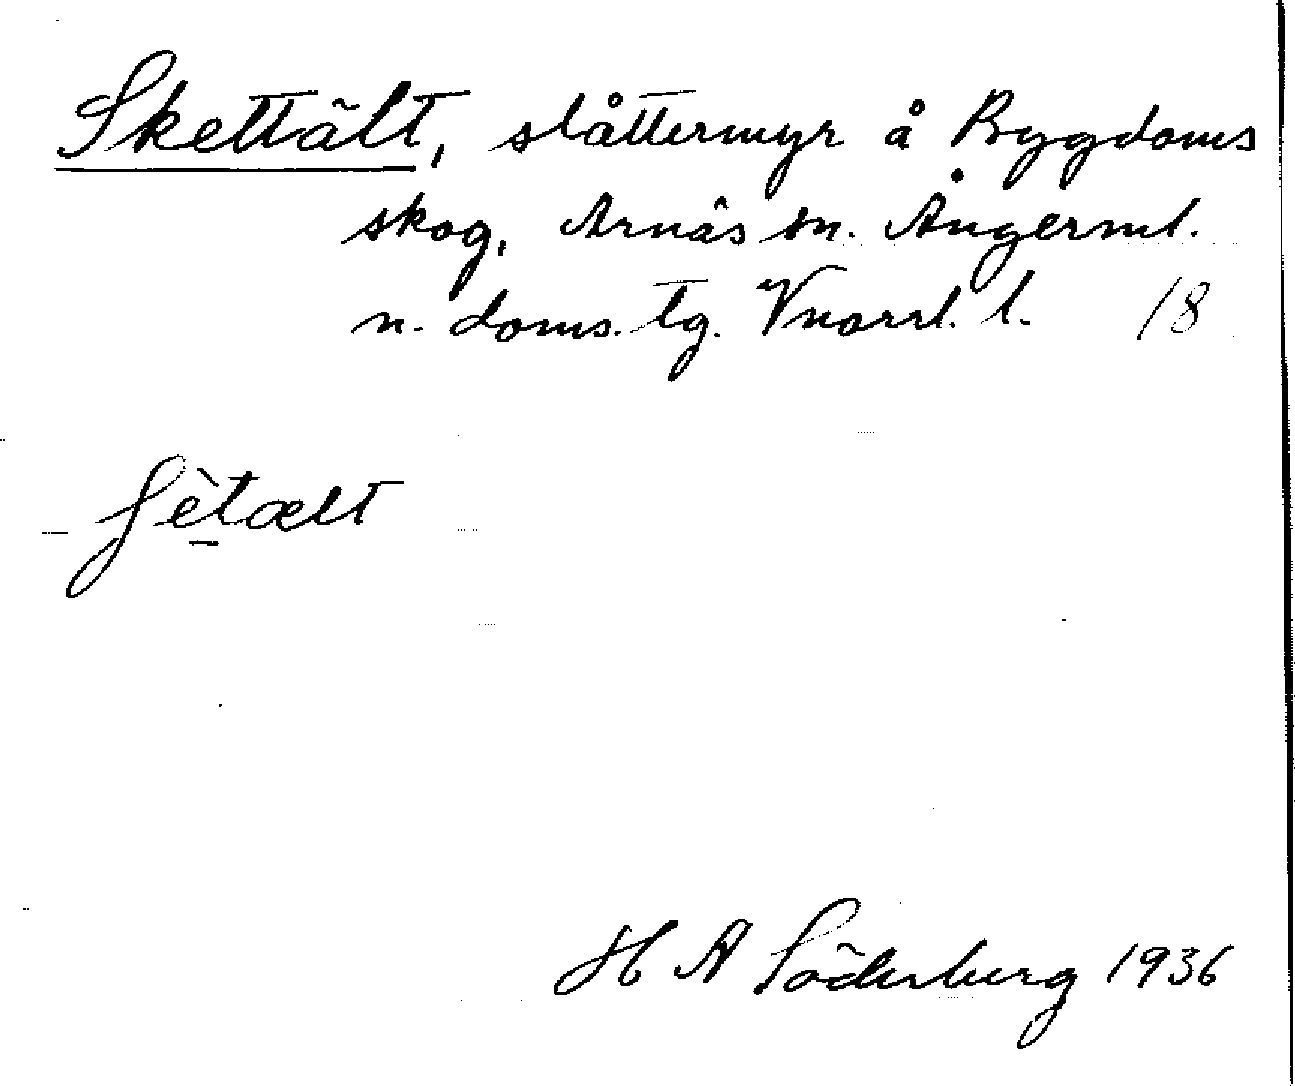 Skettält, slåttermyr å Bygdoms
skog, Arnäs sn. Ångerml.
n. doms. tg. Vnorrl. l. 18
ʃètælt
H A Söderberg 1936